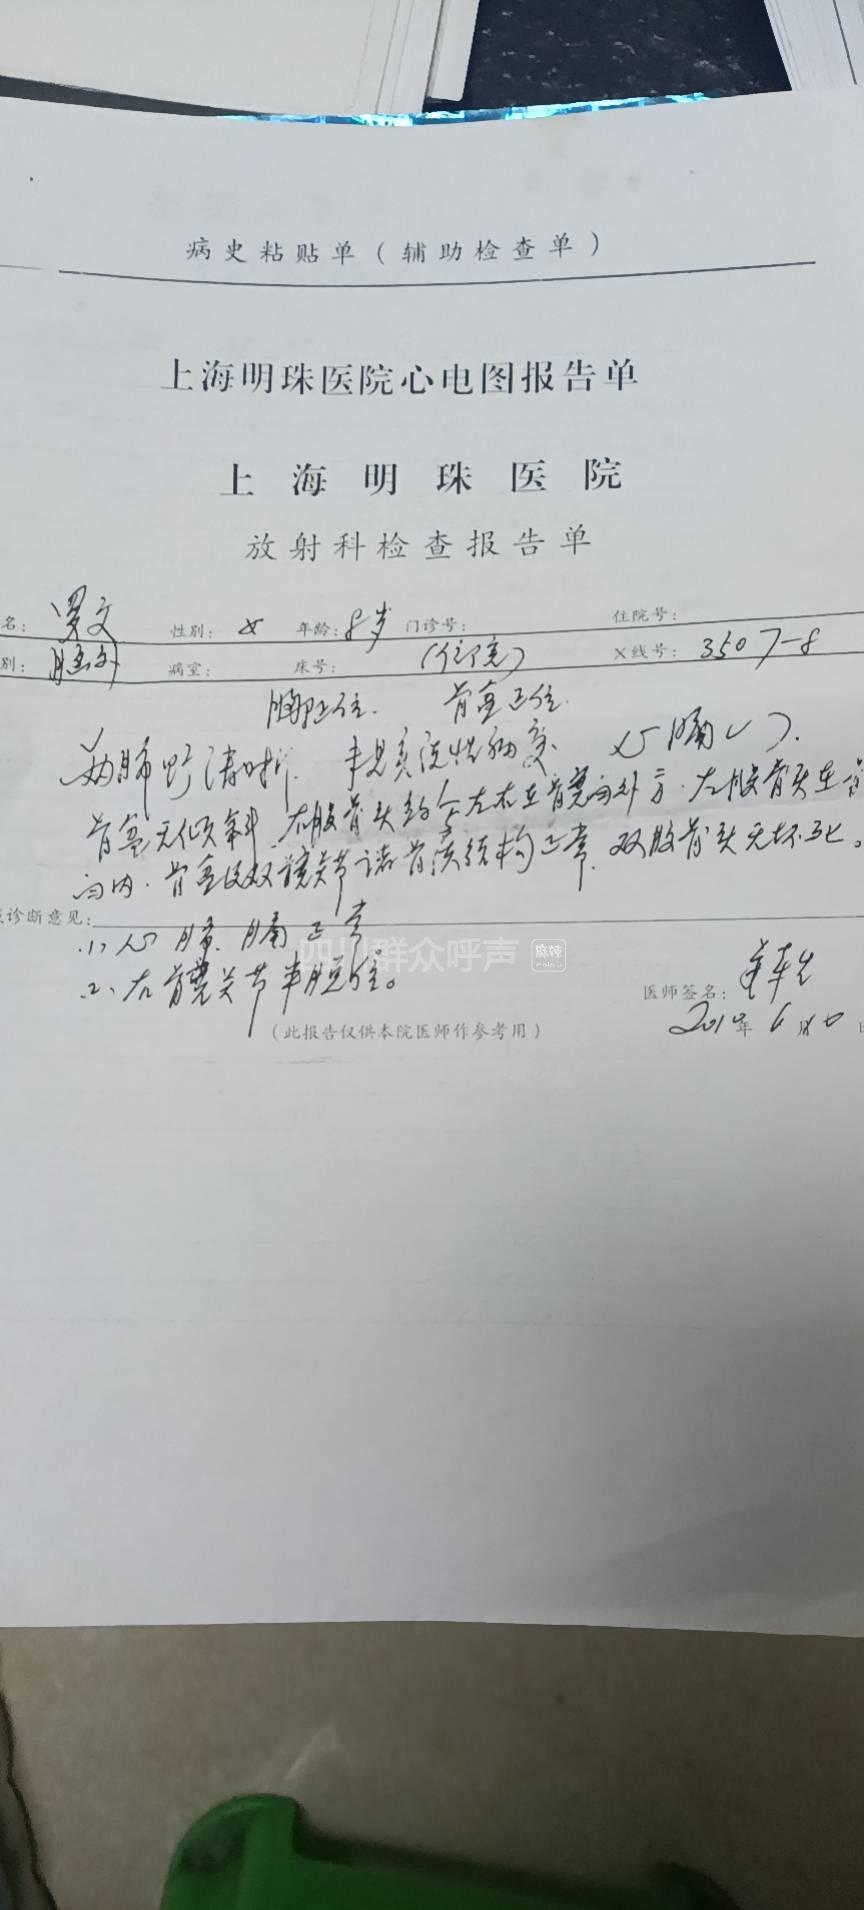 病史粘贴单（辅助检查单）
上海明珠医院心电图报告单
上海明珠医院
放射科检查报告单
名: 罗文 性别: 女 年龄: 8岁 门诊号: 住院号:
别: 病室: 床号: (住院) X线号: 3507-8
胸正位. 骨盆正位.
两肺野清晰. 未见实质性病变. 心膈(-).
骨盆无倾斜. 右股骨头约 左右在髋臼外方. 左股骨头在
臼内. 骨盆及双髋关节诸骨质结构正常. 双股骨头无坏死。
诊断意见:
(1) 心肺. 膈正常
(2). 右髋关节半脱位。
四川群众呼声 麻辣
医师签名:
2010年6月
（此报告仅供本院医师作参考用）